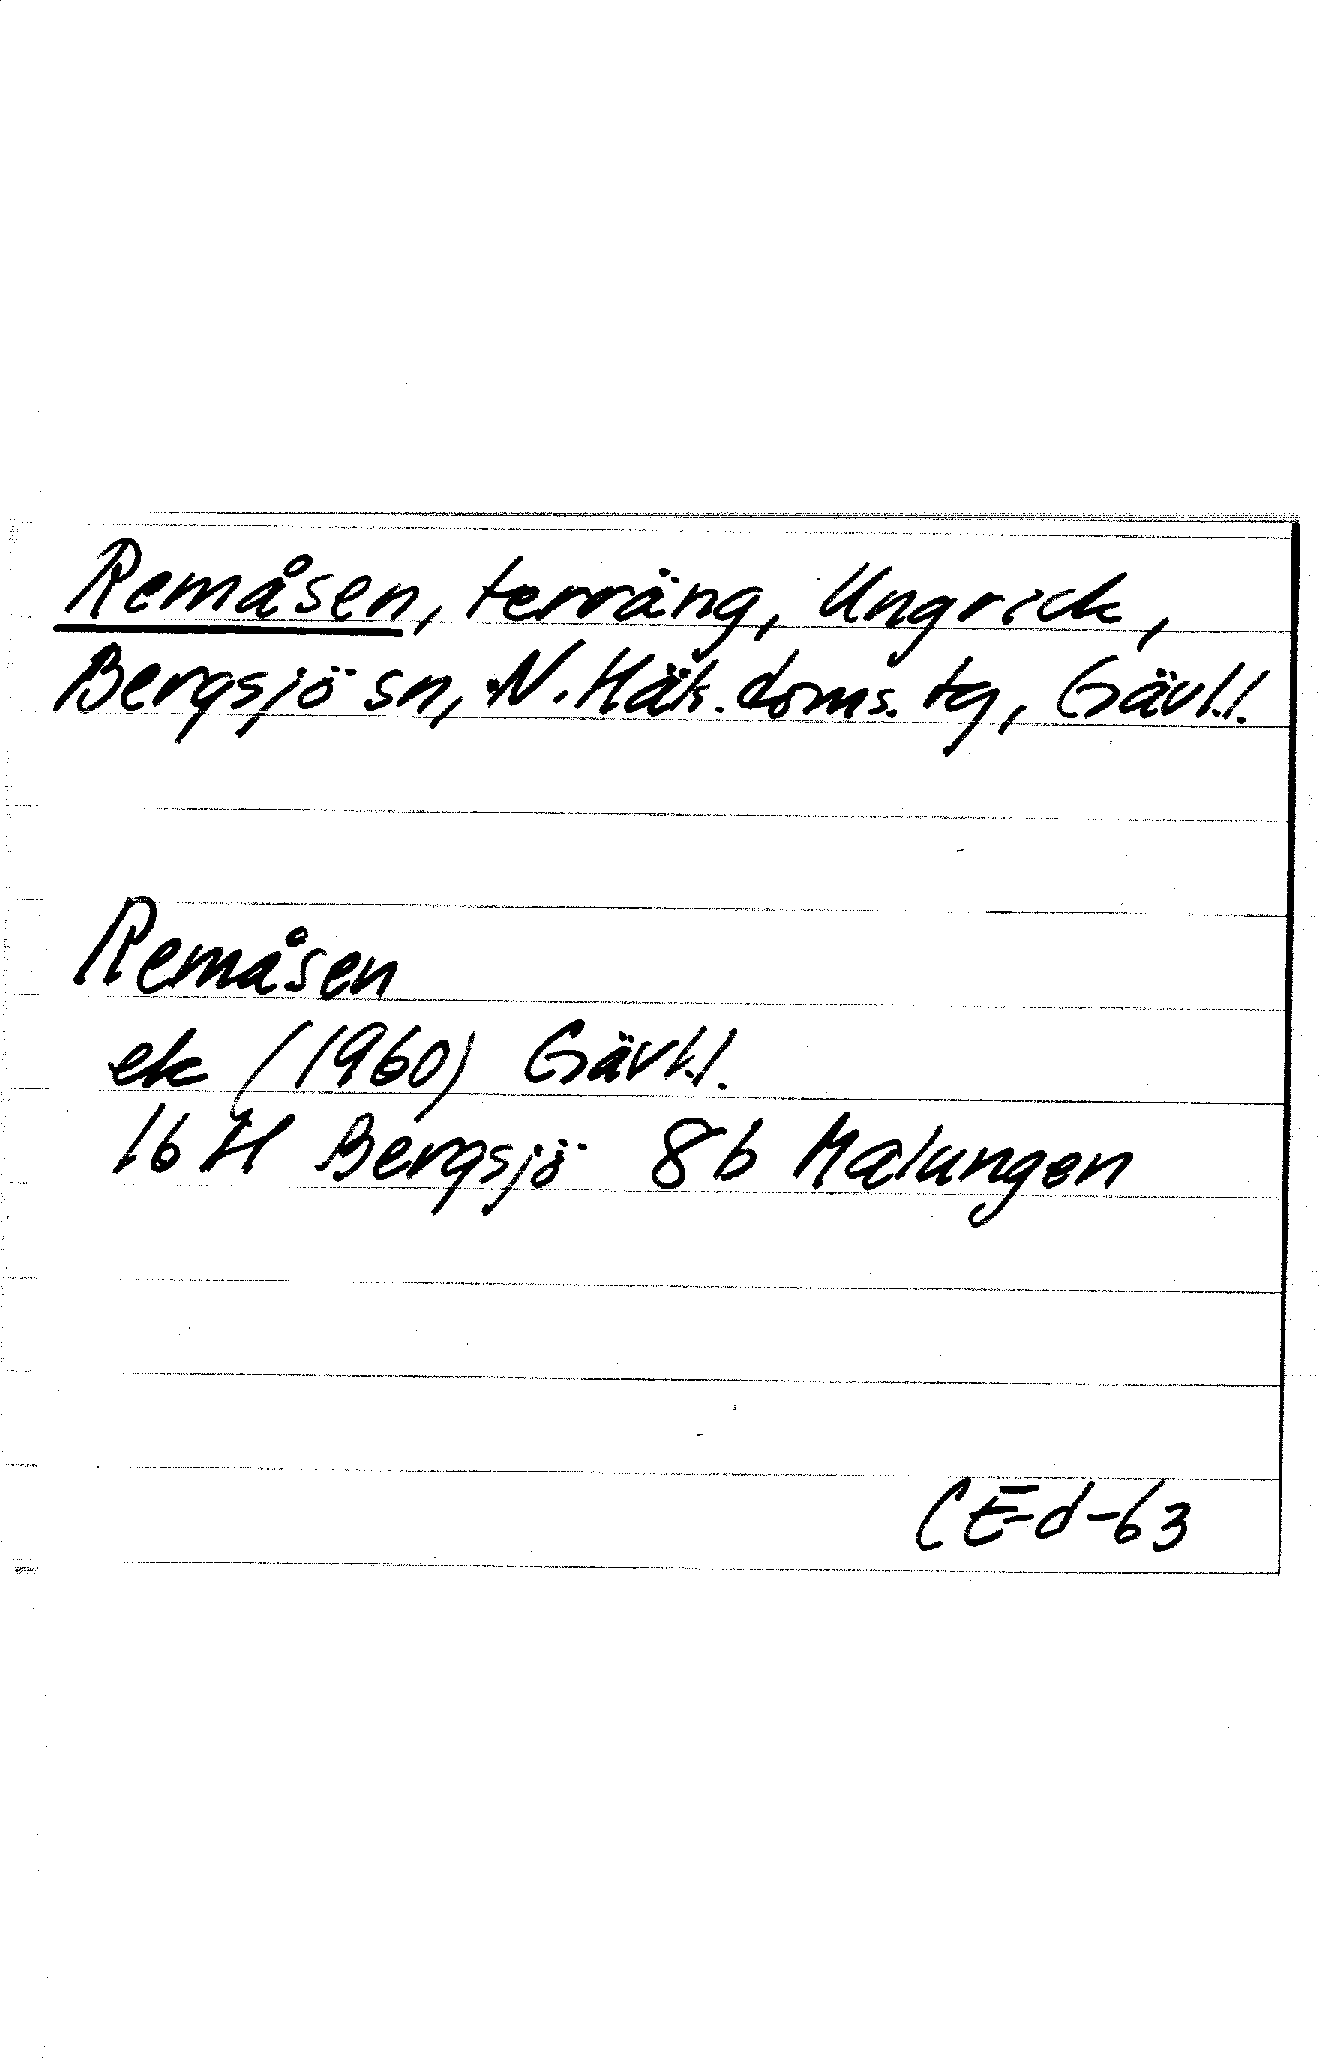 Remåsen, terräng, Ungrick,
Bergsjö sn, N. Häls. doms. tg, Gävl.l.
Remåsen
ek (1960) Gävl.l.
16 H Bergsjö 8b Malungen
CEd-63